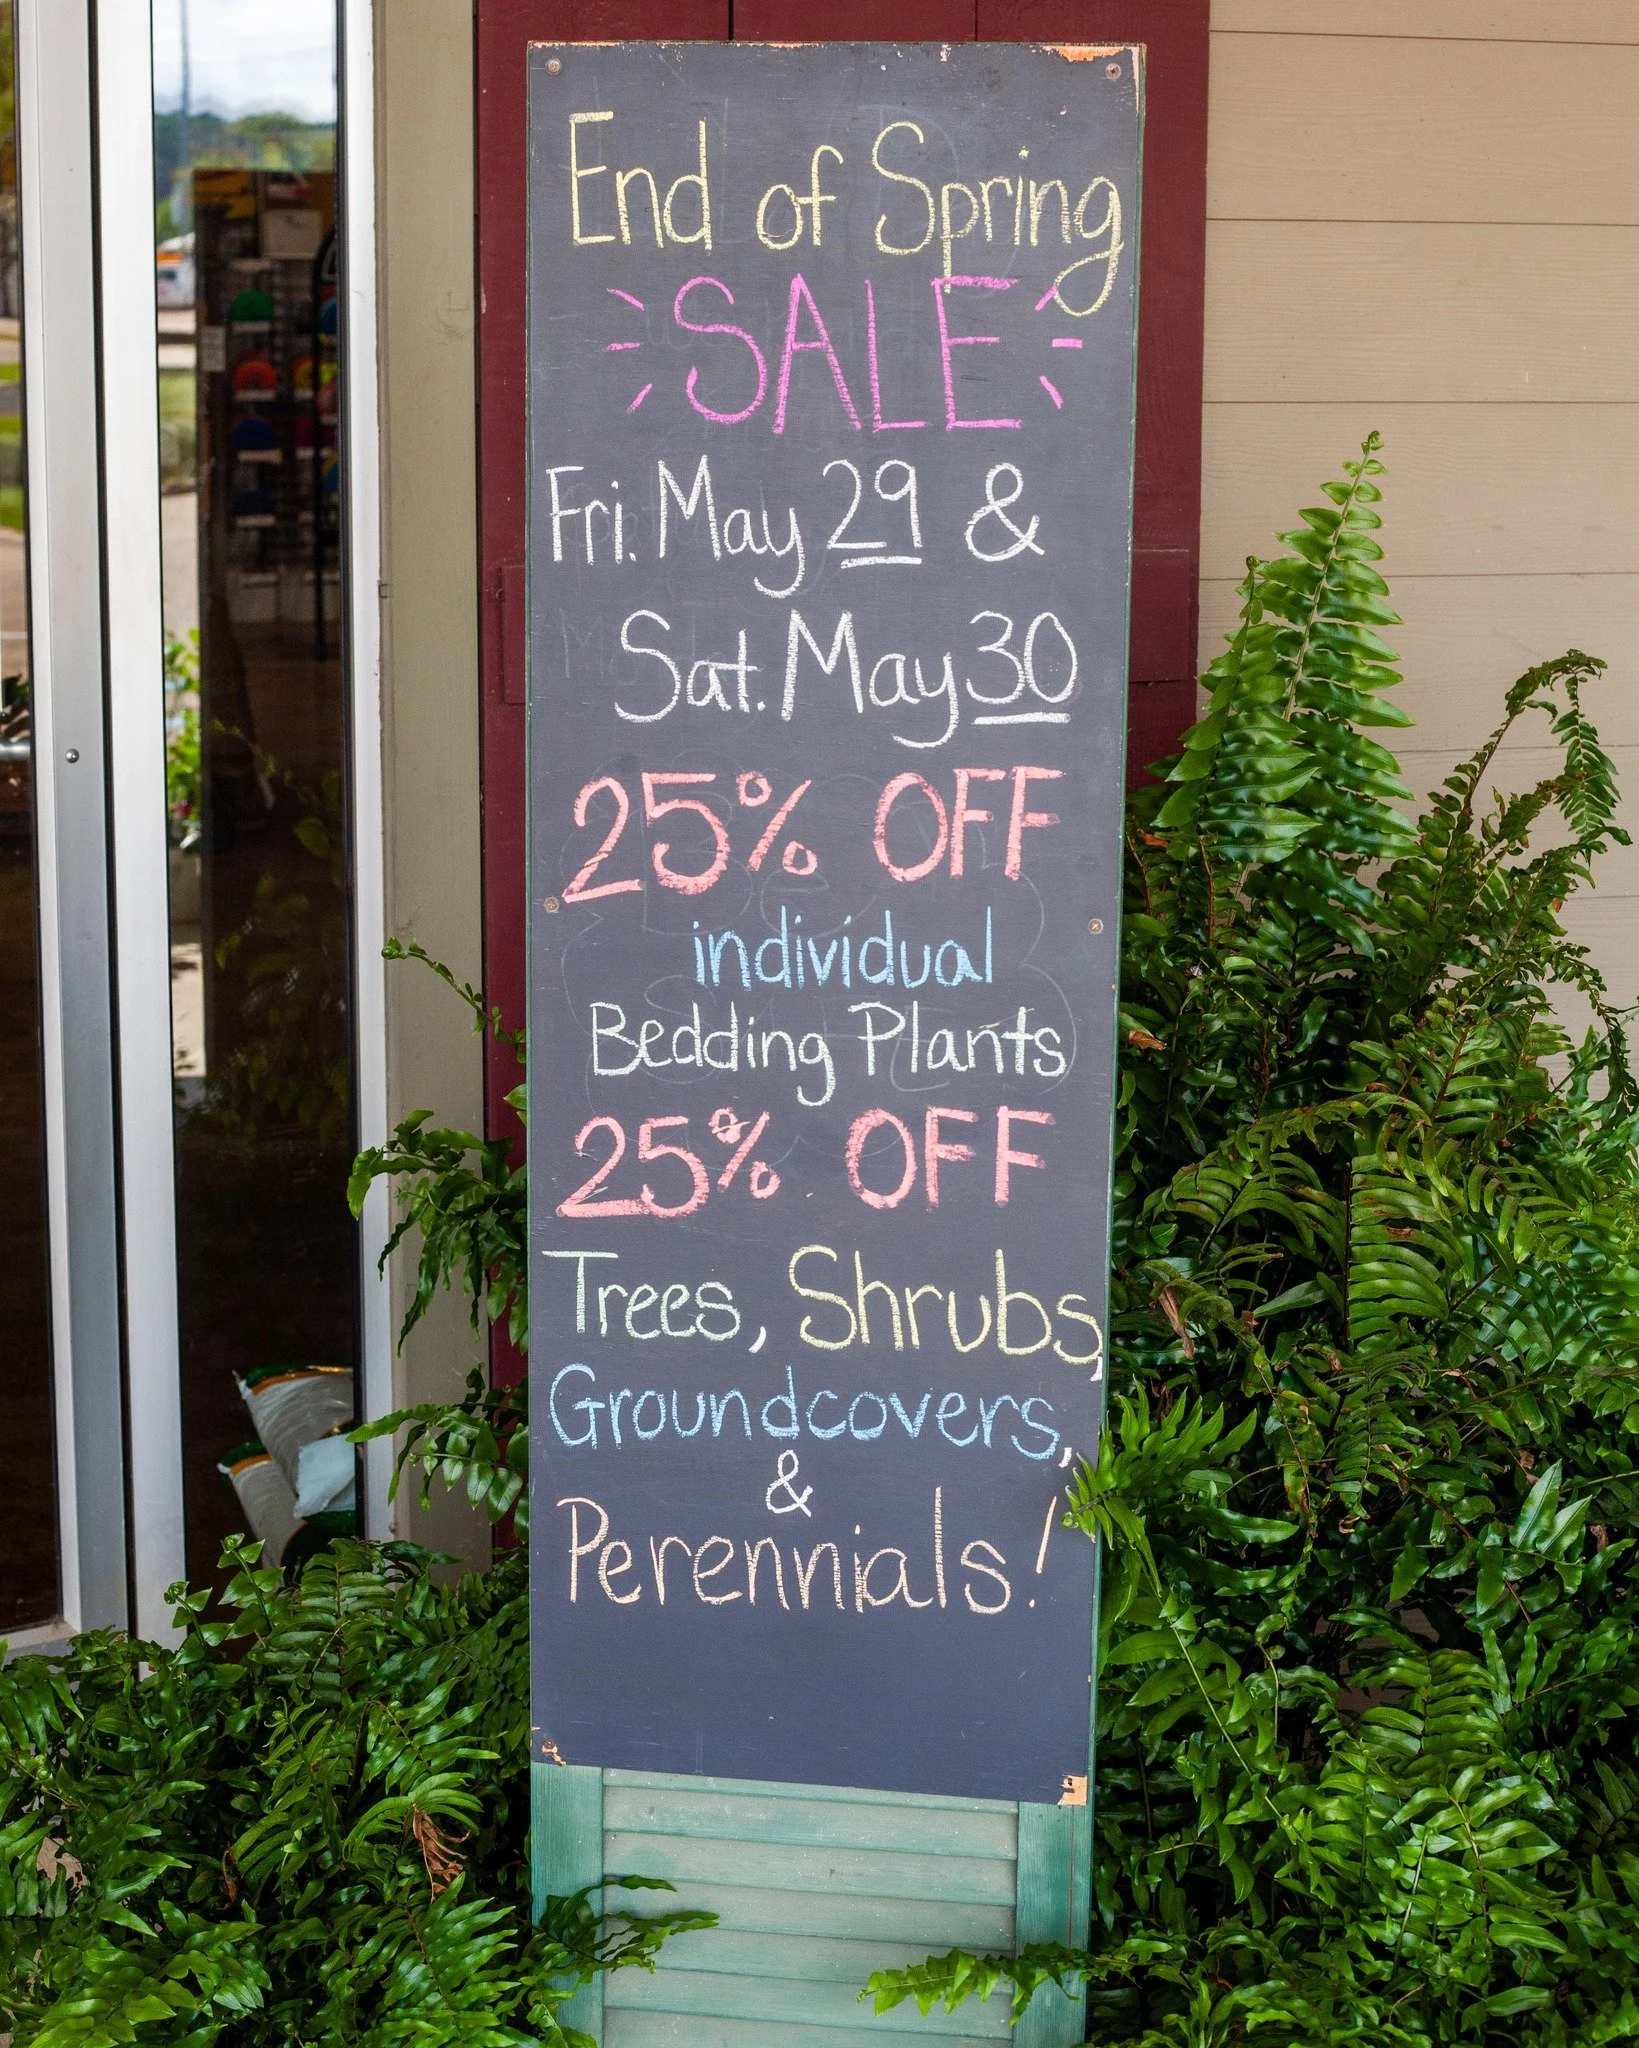 End of Spring
SALE
Fri. May 29 &
Sat. May 30
25% OFF
individual
Bedding Plants
25% OFF
Trees, Shrubs,
Groundcovers,
&
Perennials!